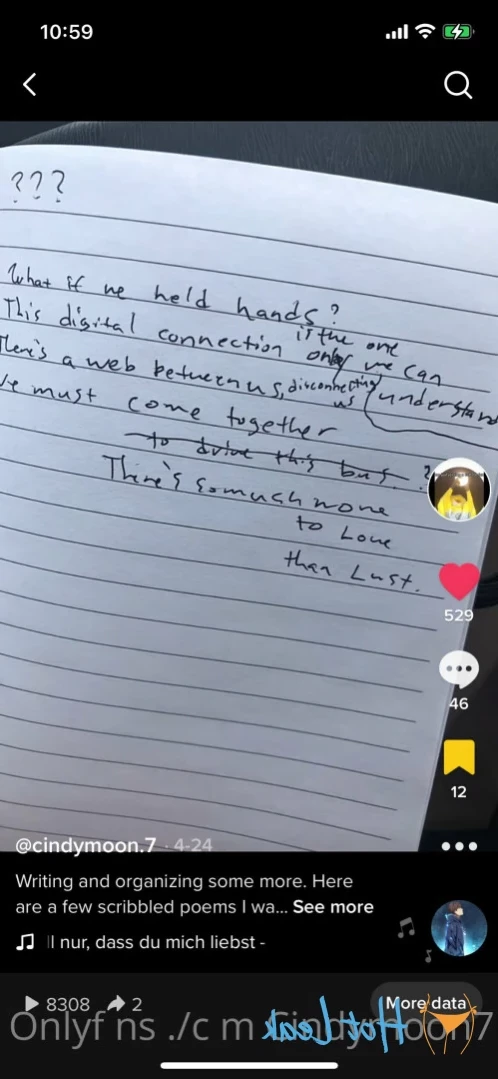 10:59
???
What if we held hands?
This digital connection is the one
only we can
understand
There's a web between us, disconnecting
us
We must come together
to drive this bus. ?
There's so much more
to Love
than Lust.
529
46
12
@cindymoon.7 · 4-24
Writing and organizing some more. Here
are a few scribbled poems I wa... See more
l nur, dass du mich liebst -
8308
2
More data
Onlyf ns ./c m
HotLeak